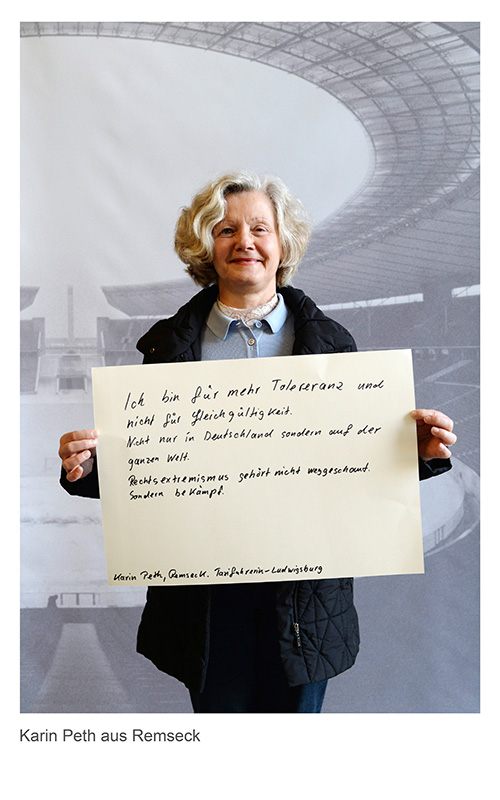 Ich bin für mehr Toleranz und
nicht für Gleichgültigkeit.
Nicht nur in Deutschland sondern auf der
ganzen Welt.
Rechtsextremismus gehört nicht weggeschaut.
Sondern bekämpf.
Karin Peth, Remseck. Taxifahrerin-Ludwigsburg
Karin Peth aus Remseck